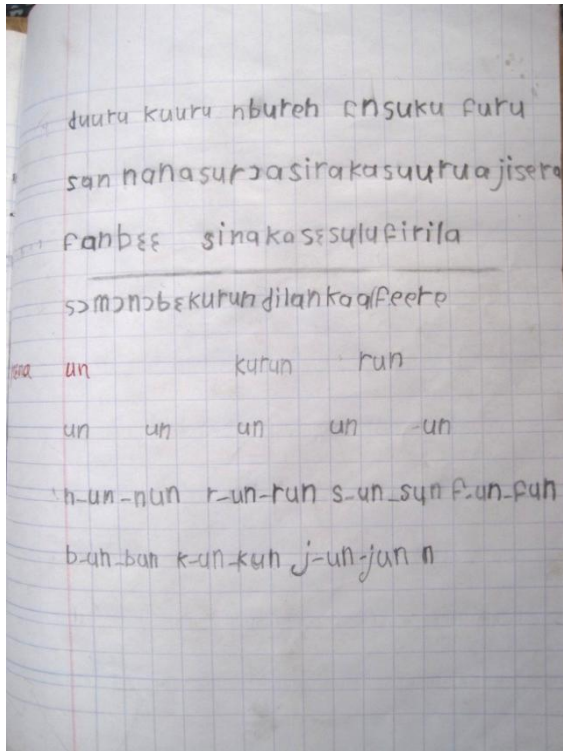 duuru kuuru nburen cnsuku furu
san nanasurɔasirakasuuruajisera
fanbɛɛ sinakasɛsulufirila
sɔmɔnɔbɛkurundilankaafeere
un kurun run
un un un un un
n-un-nun r-un-run s-un-sun f-un-fun
b-un-bun k-un-kun j-un-jun n